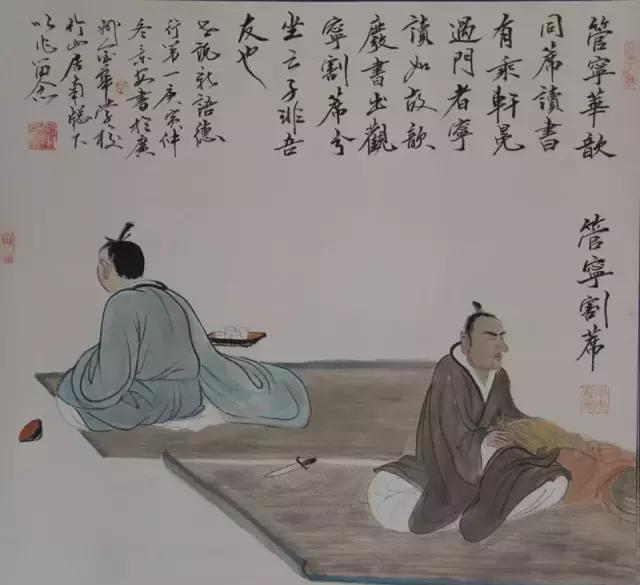 管寧華歆
同席讀書
有乘軒冕
過門者寧
讀如故歆
廢書出觀
寧割席分
坐云子非吾
友也
世說新語德
行第一庚寅仲
冬書於廣
州金華學校
山居南牕下
以留念
管寧割席